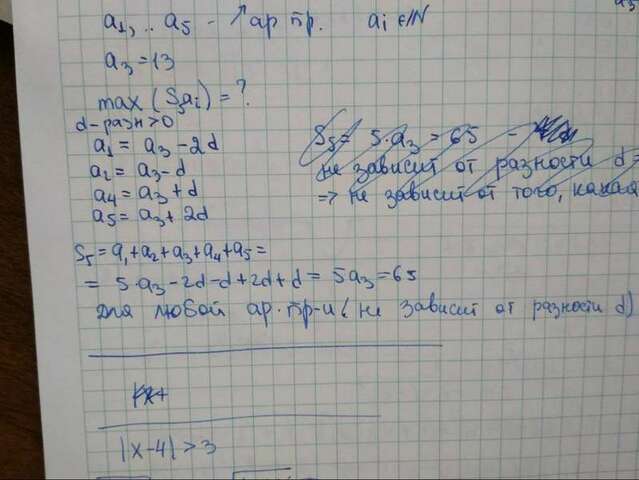 a₁, .. a₅ - ↗ ар пр. aᵢ ∈ N
a₃ = 13
max (S aᵢ) = ?
d - разн > 0
a₁ = a₃ - 2d
a₂ = a₃ - d
a₄ = a₃ + d
a₅ = a₃ + 2d
S₅ = 5·a₃ = 65 -
не зависит от разности d =
=> не зависит от того, какая
S₅ = a₁ + a₂ + a₃ + a₄ + a₅ =
= 5·a₃ - 2d - d + 2d + d = 5a₃ = 65
для любой ар. пр-и ( не зависит от разности d)
|x-4| > 3